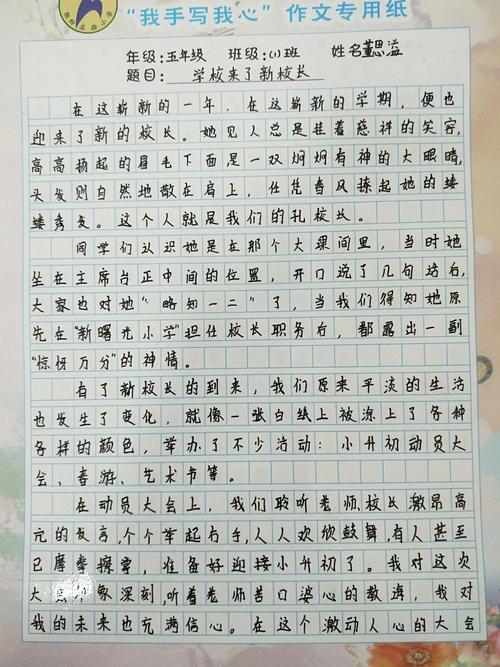 "我手写我心"作文专用纸
年级:五年级 班级:(1)班 姓名董思溢
题目: 学校来了新校长
在这崭新的一年,在这崭新的学期,便也
迎来了新的校长。她见人总是挂着慈祥的笑容,
高高扬起的眉毛下面是一双炯炯有神的大眼睛,
头发则自然地散在肩上,任凭春风撩起她的缕
缕秀发。这个人就是我们的孔校长。
同学们认识她是在那个大课间里,当时她
坐在主席台正中间的位置,开口说了几句话后,
大家也对她"略知一二"了,当我们得知她原
先在"新曙光小学"担任校长职务后,都露出一副
"惊讶万分"的神情。
有了新校长的到来,我们原来平淡的生活
也发生了变化,就像一张白纸上被添上了各种
各样的颜色,举办了不少活动:小升初动员大
会、春游、艺术节等。
在动员大会上,我们聆听老师、校长激昂高
亢的发言,个个举起右手,人人欢欣鼓舞,有人甚至
已摩拳擦掌,准备好迎接小升初了。我对这次
大会印象深刻,听着老师苦口婆心的教诲,我对
我的未来也充满信心。在这个激动人心的大会